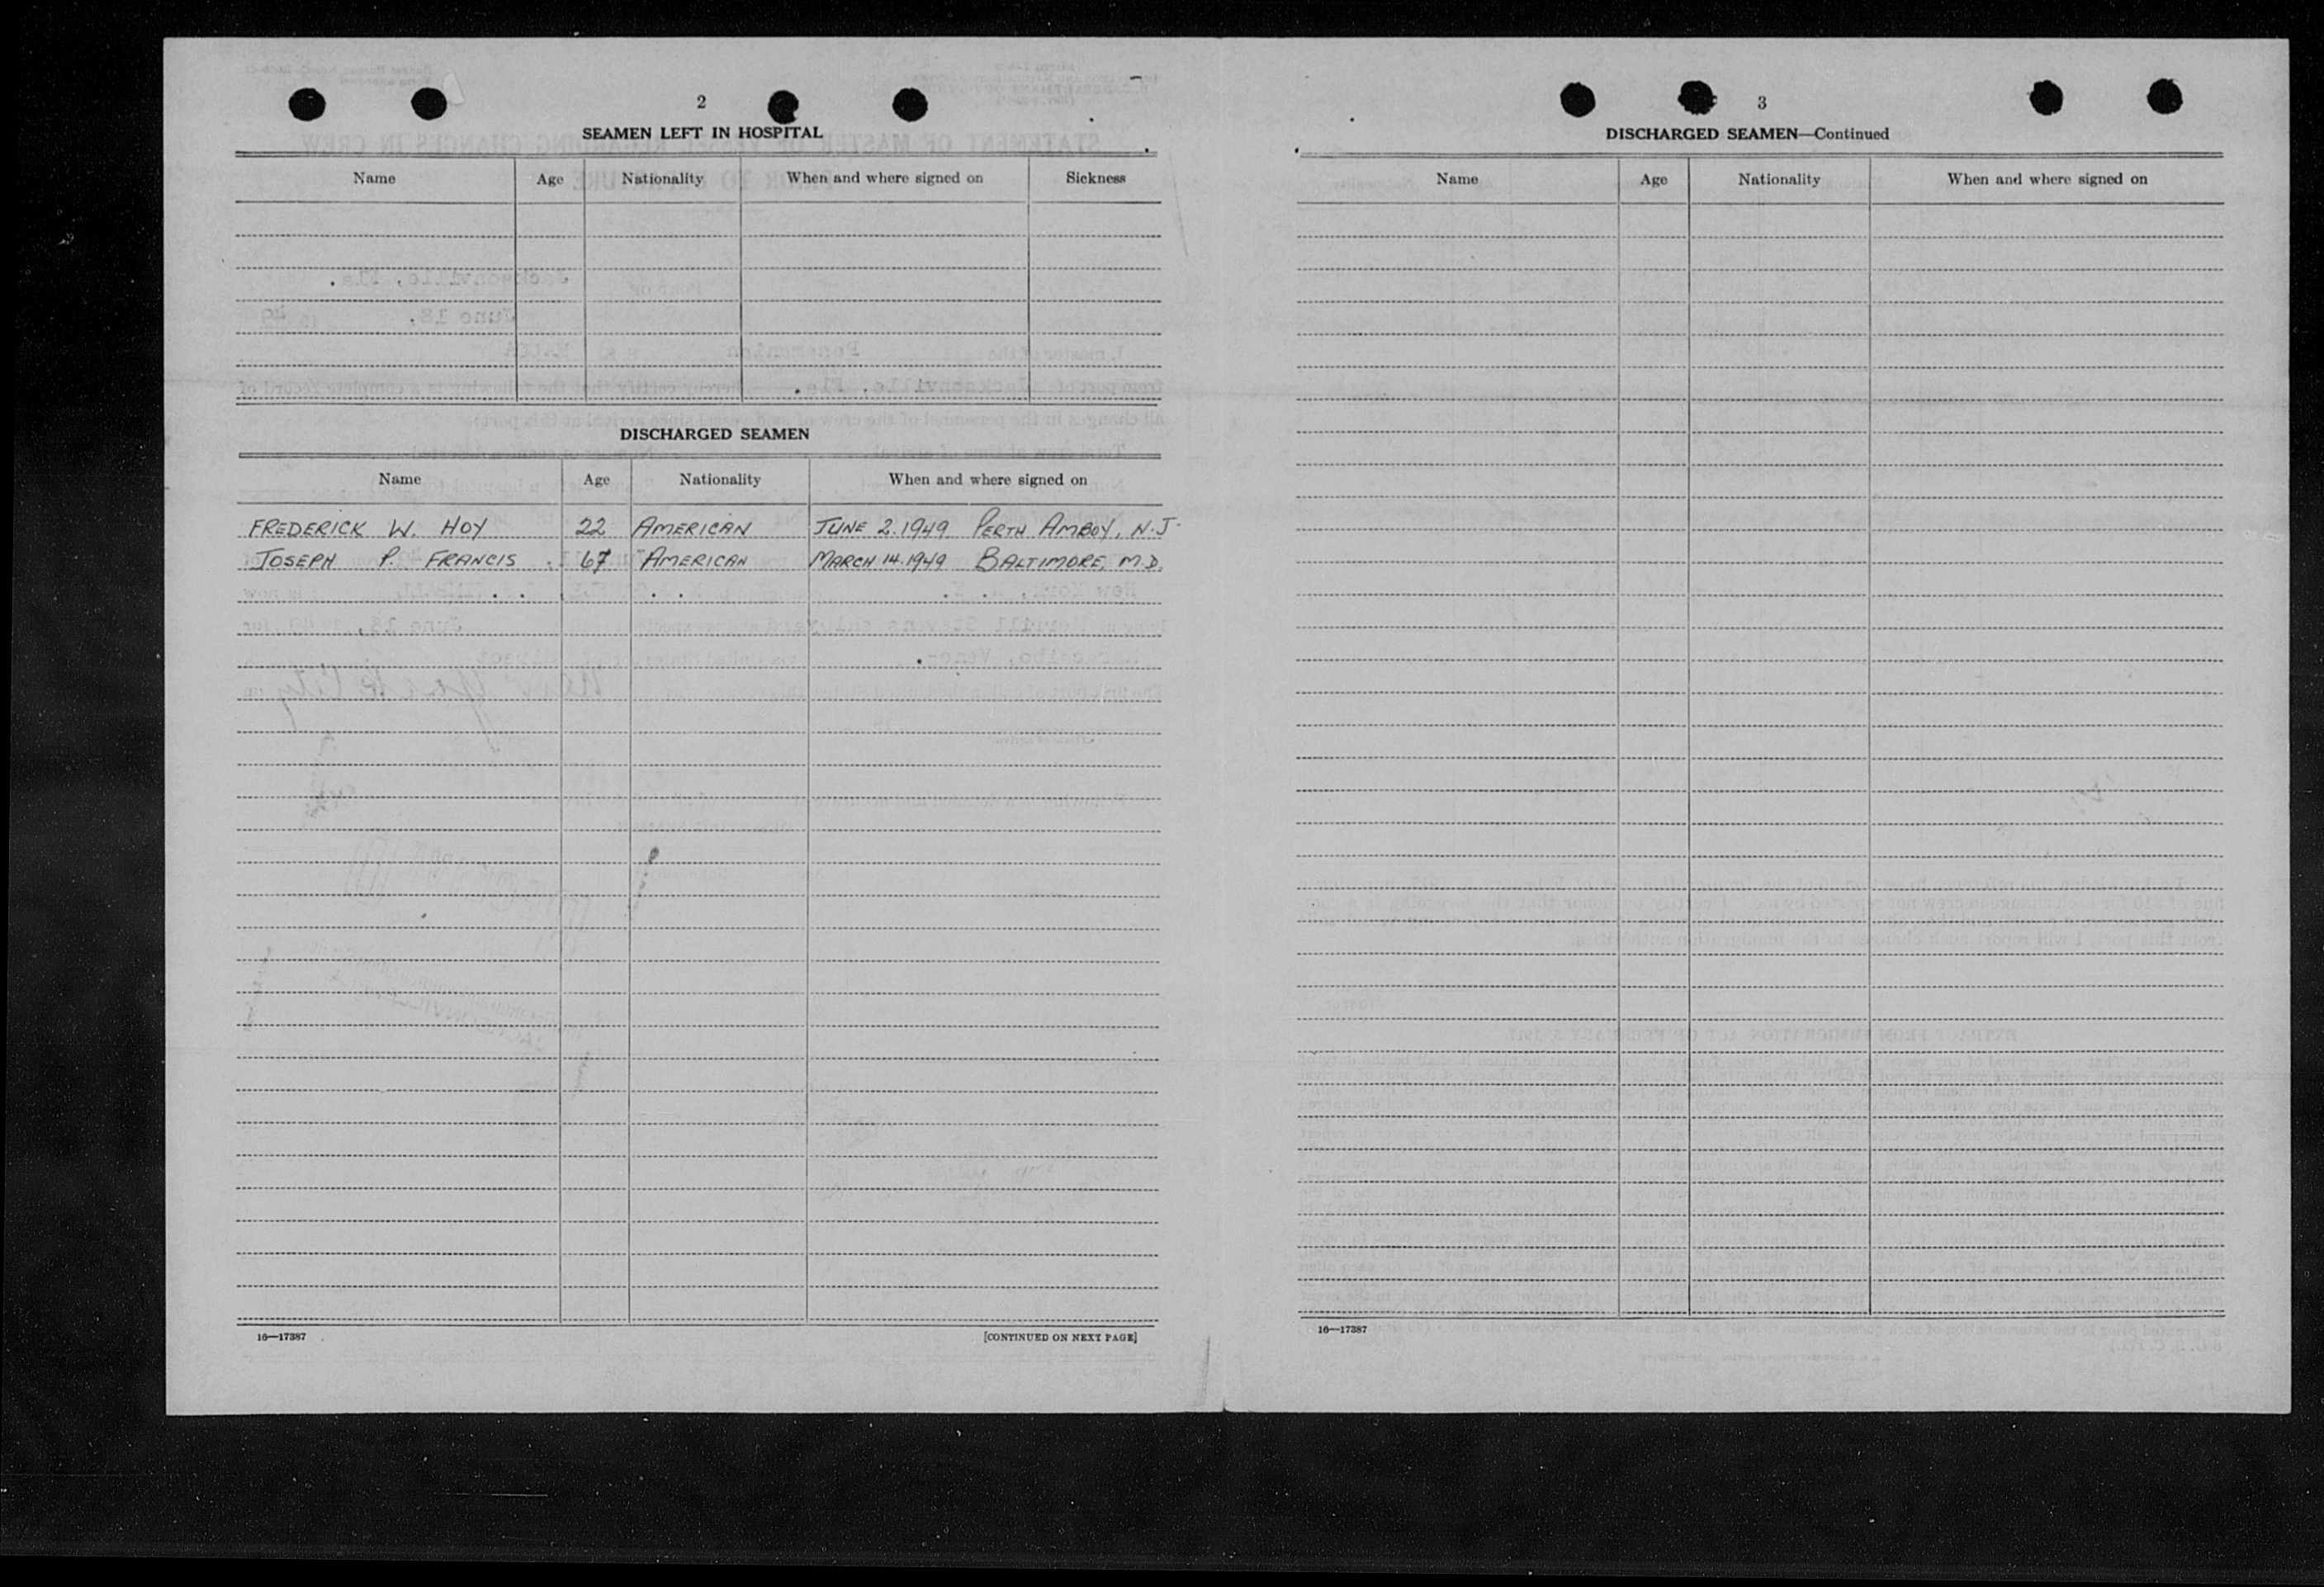 2
SEAMEN LEFT IN HOSPITAL
Name Age Nationality When and where signed on Sickness
DISCHARGED SEAMEN
Name Age Nationality When and where signed on
FREDERICK W. HOY 22 AMERICAN JUNE 2.1949 PERTH AMBOY, N.J.
JOSEPH P. FRANCIS 67 AMERICAN MARCH 14.1949 BALTIMORE, M.D.
16—17387 [CONTINUED ON NEXT PAGE]
3
DISCHARGED SEAMEN—Continued
Name Age Nationality When and where signed on
16—17387